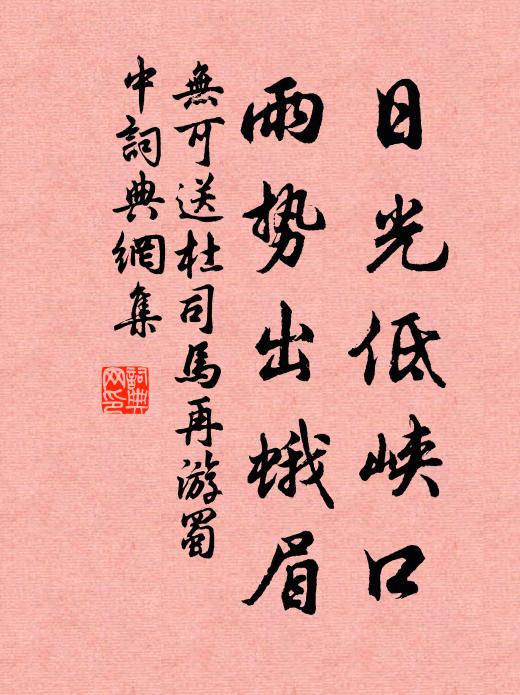 日光低峡口
雨势出蛾眉
無可送杜司馬再游蜀
中詞典網集
詞典
网印